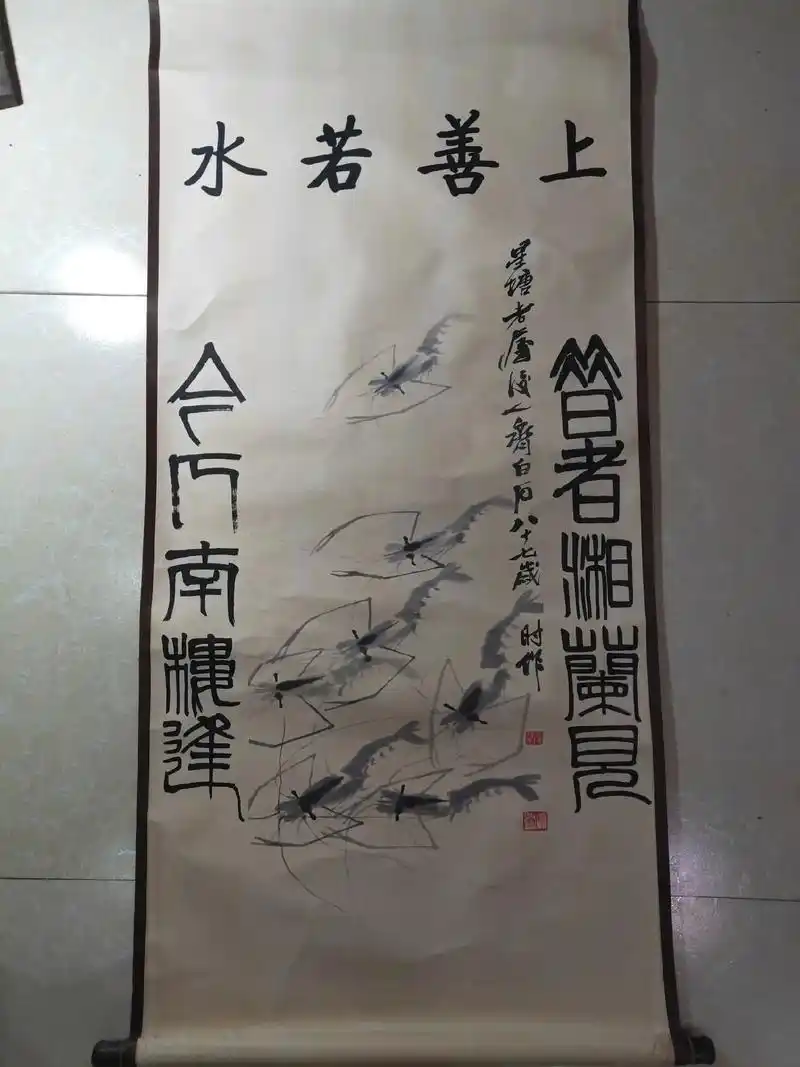 上善若水
昔者湘蘭見
星塘老屋後人齊白石八十七歲时作
今南樓逢